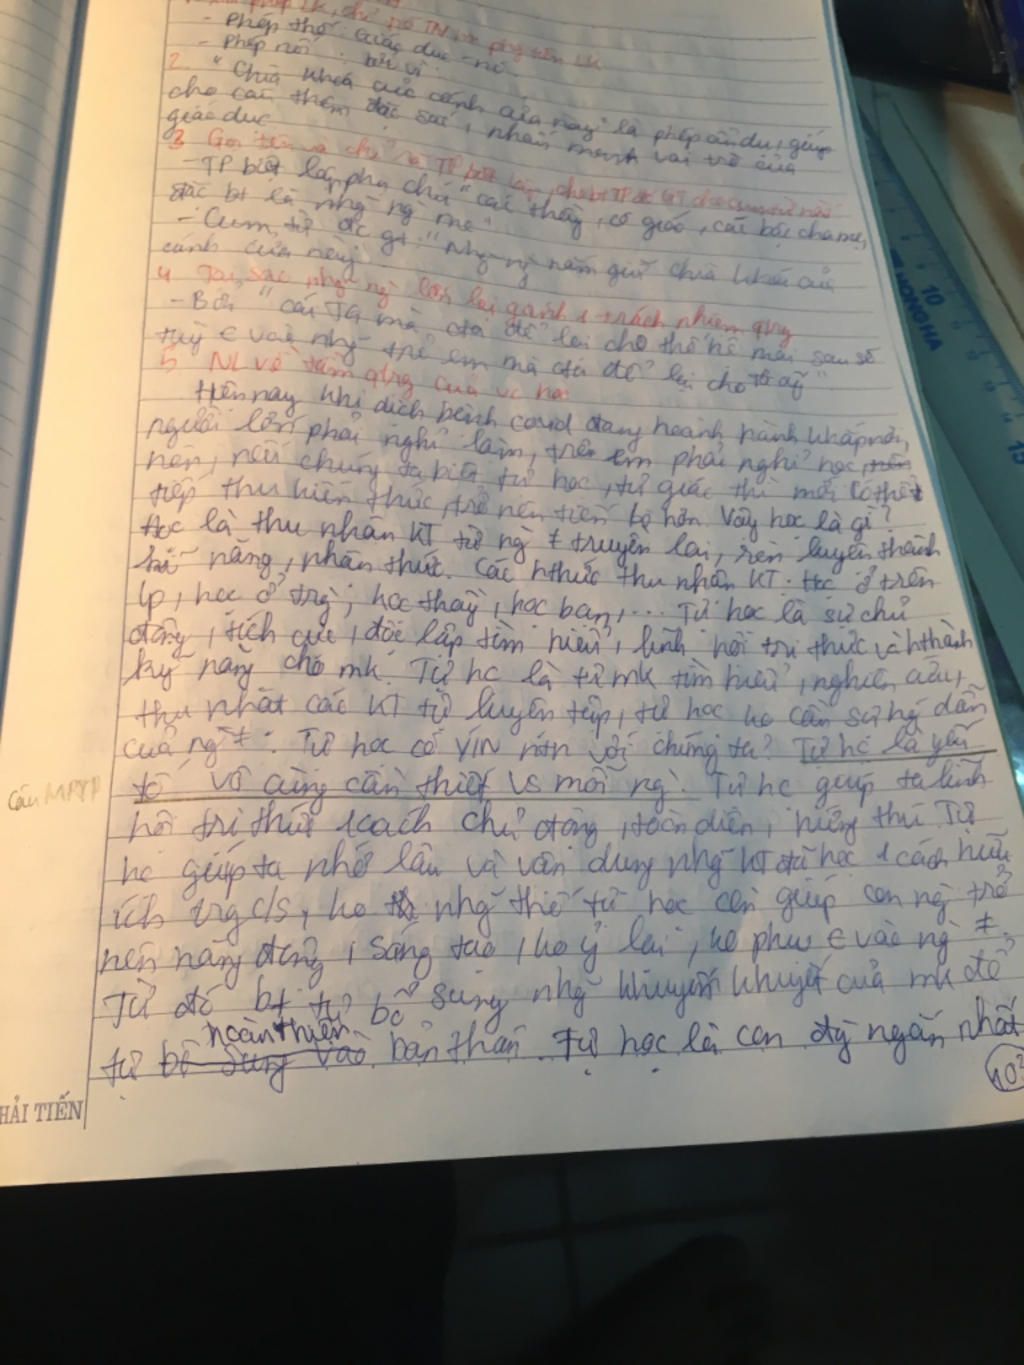 phép LK, chỉ ra TN, ptiện LK
- phép thế: Giáo dục - nó
- phép nối: bởi vì
2. "Chìa khoá của cánh cửa này" là phép ẩn dụ, giúp
cho câu thêm đặc sắc, nhấn mạnh vai trò của
giáo dục
3 Gọi tên và chỉ ra TP biệt lập, cho bt TP đc GT cho cụm từ nào
- TP biệt lập phụ chú "các thầy, cô giáo, các bậc cha mẹ,
đặc bt là những ng mẹ"
- Cụm từ đc gt: "Những ng nắm giữ chìa khoá của
cánh cửa này
4 Tại sao, nhg ng lớn lại gánh 1 trách nhiệm qtrg
- Bởi "cái TG mà cta để lại cho thế hệ mai sau sẽ
tuỳ € vào nhg trẻ em mà cta để lại cho TG ấy"
5 NL về tầm qtrg của vc học
Hiện nay khi dịch bệnh covid đang hoành hành khắp nơi,
người lớn phải nghỉ làm, trẻ em phải nghỉ học,
nên, nếu chúng ta biết tự học, tự giác thì mới có thể
tiếp thu kiến thức, trở nên tiến bộ hơn. Vậy học là gì?
Học là thu nhận KT từ ng ≠ truyền lại, rèn luyện thành
kĩ năng, nhận thức. Các hthức thu nhận KT: Học ở trên
lp, học ở trg, học thầy, học bạn,... Tự học là sự chủ
động, tích cực, độc lập tìm hiểu, lĩnh hội tri thức và hthành
kỹ năng cho mk. Tự hc là tự mk tìm hiểu, nghiên cứu,
thu nhặt các KT tự luyện tập, tự học ko cần sự hg dẫn
của ng ≠. Tự học có YN ntn với chúng ta? Tự hc là yếu
Câu MRTP
tố vô cùng cần thiết vs mỗi ng. Tự hc giúp ta lĩnh
hội tri thức 1 cách chủ động, toàn diện, hứng thú. Tự
hc giúp ta nhớ lâu và vận dụng nhg KT đã học 1 cách hữu
ích trg c/s, ko nhg thế tự học còn giúp con ng trở
nên năng động, sáng tạo, ko ỷ lại, ko phụ € vào ng ≠.
Từ đó bt tự bổ sung nhg khuyết của mk để
hoàn thiện
tự bổ sung vào bản thân. Tự học là con đg ngắn nhất
HẢI TIẾN
10
HONG HA
10
15